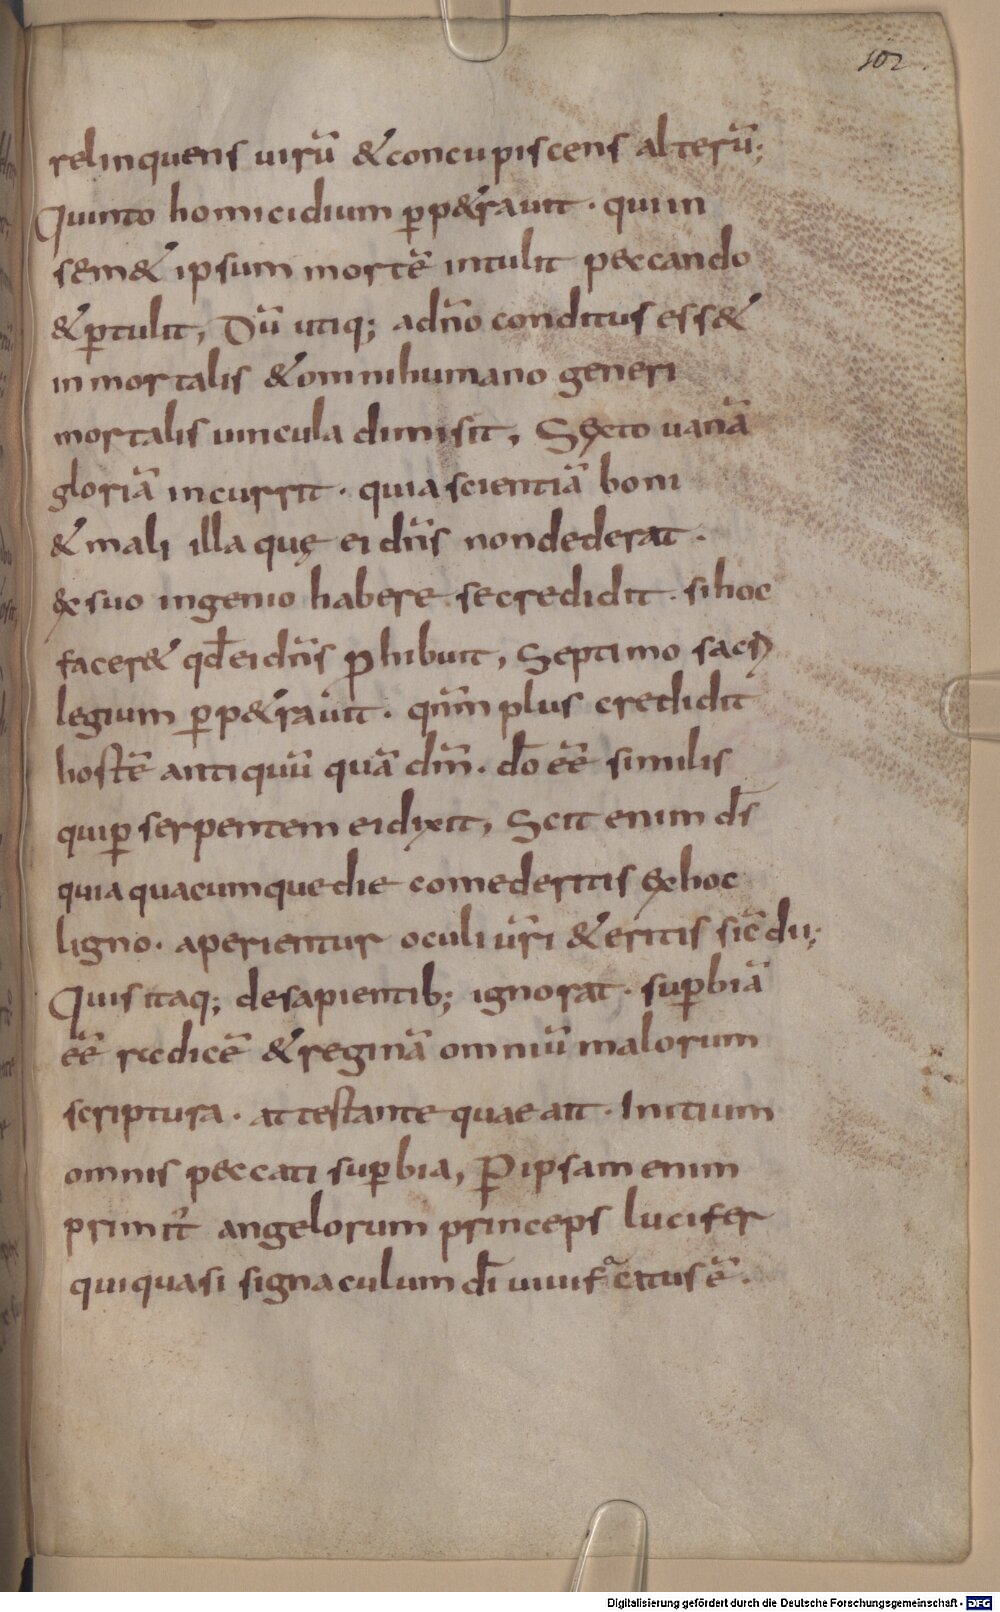 102.
relinquens uirū &concupiscens alterū;
Quinto homicidium ꝑp&rauit · quiin
sem& ipsum mortē intulit peccando
&ꝑtulit, Dū utiq; adn̄o conditus ess&
inmortalis &omnihumano generi
mortalis uincula dimisit, Sexto uanā
gloriā incurrit · quiascientiā boni
& mali illa quę ei dn̄s nondederat ·
ex suo ingenio habere secredidit · sihoc
facer& qd̄eidn̄s ꝓhibuit, Septimo sacri
legium ꝑp&rauit · qn̄m plus credidit
hostē antiquū quā dn̄m · dō eē̄ similis
quiꝑ serpentem eidixit, Scit enim ds̄
quia quacumquedie comederitis exhoc
ligno · aperientur oculi ur̄i &eritis sic̄ dii;
Quis itaq; desapientib; ignorat · suꝑbiā
eē̄ radicē &reginā omniū malorum
scriptura · attestante quae ait · Initium
omnis peccati suꝑbia, Ꝑ ipsam enim
primit᷒ angelorum princeps lucifer
quiquasi signaculum dī uiuificatus ē ·
Digitalisierung gefördert durch die Deutsche Forschungsgemeinschaft - DFG